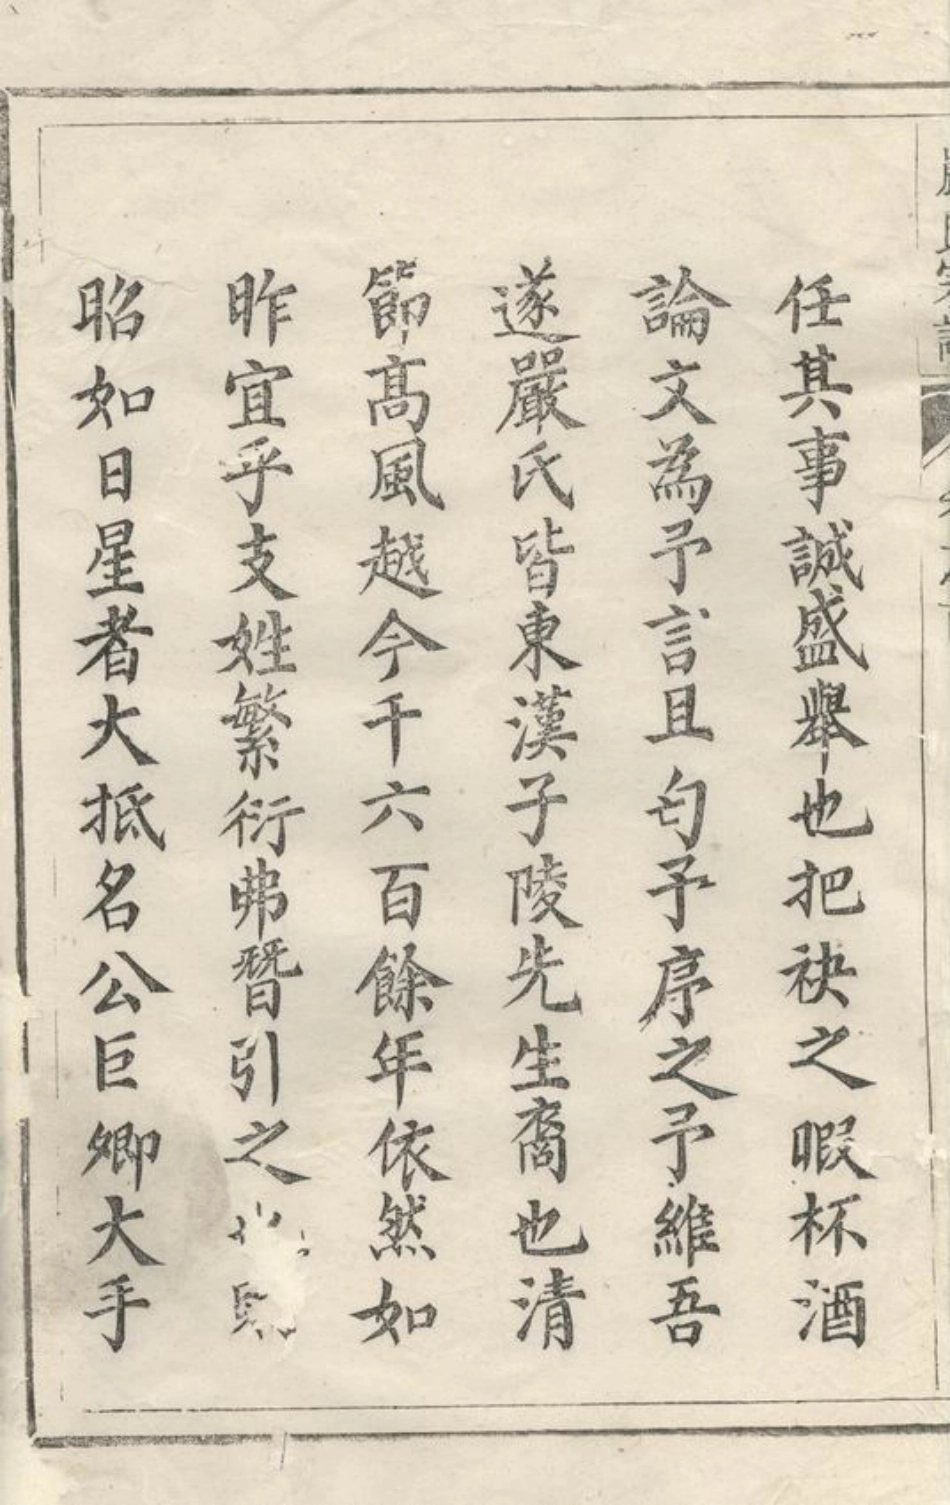 任其事誠盛舉也把袂之暇杯酒
論文為予言且匄予序之予維吾
遂嚴氏皆東漢子陵先生裔也清
節髙風越今千六百餘年依然如
昨宜乎支姓繁衍弗朁引之
昭如日星者大抵名公巨卿大手